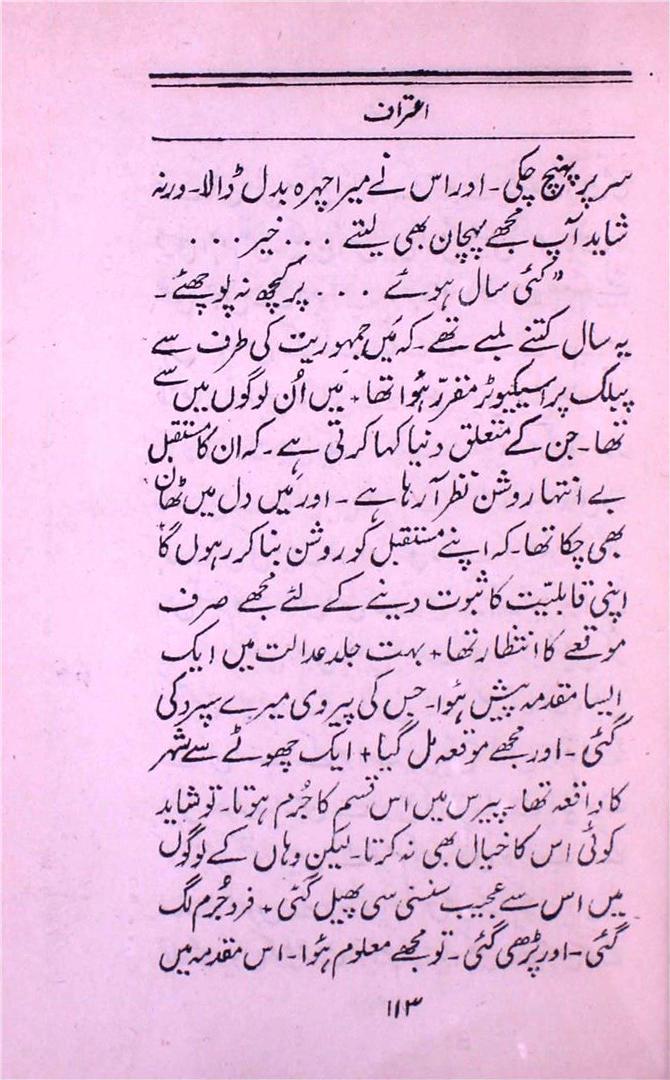 اعتراف
سر پر پہنچ چکی ۔ اور اس نے میرا چہرہ بدل ڈالا ۔ ورنہ
شاید آپ مجھے پہچان بھی لیتے . . . خیر . . .
”کئی سال ہوئے . . . پر کچھ نہ پوچھئے ۔
یہ سال کتنے لمبے تھے ۔ کہ مَیں جمہوریت کی طرف سے
پبلک پراسیکیوٹر مقرر ہُوا تھا + مَیں اُن لوگوں میں سے
تھا ۔ جن کے متعلق دنیا کہا کرتی ہے ۔ کہ ان کا مستقبل
بے انتہا روشن نظر آ رہا ہے ۔ اور مَیں دل میں ٹھان
بھی چکا تھا ۔ کہ اپنے مستقبل کو روشن بنا کر رہوں گا
اپنی قابلیّت کا ثبوت دینے کے لئے مجھے صرف
موقعے کا انتظار تھا + بہت جلد عدالت میں ایک
ایسا مقدمہ پیش ہُوا ۔ جس کی پیروی میرے سپرد کی
گئی ۔ اور مجھے موقعہ مل گیا + ایک چھوٹے سے شہر
کا واقعہ تھا ۔ پیرس میں اس قسم کا جُرم ہوتا ۔ تو شاید
کوئی اس کا خیال بھی نہ کرتا ۔ لیکن وہاں کے لوگوں
میں اس سے عجیب سنسنی سی پھیل گئی + فردِ جُرم لگ
گئی ۔ اور پڑھی گئی ۔ تو مجھے معلوم ہُوا ۔ اس مقدمہ میں
۱۱۳